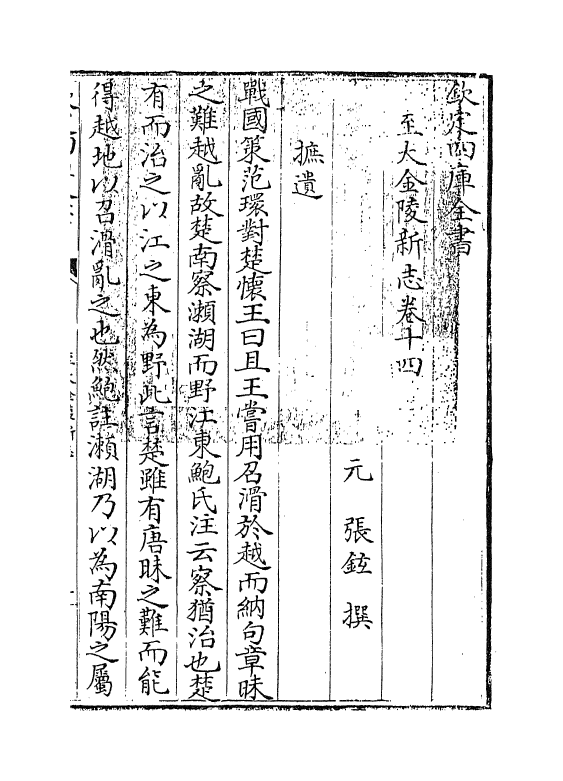 欽定四庫全書
至大金陵新志卷十四
元 張鉉 撰
摭遺
戰國策范環對楚懷王曰且王嘗用召滑於越而納句章昧
之難越亂故楚南察瀨湖而野江東鮑氏注云察猶治也楚
有而治之以江之東為野此言楚雖有唐昧之難而能
得越地以召滑亂之也然鮑註瀨湖乃以為南陽之屬